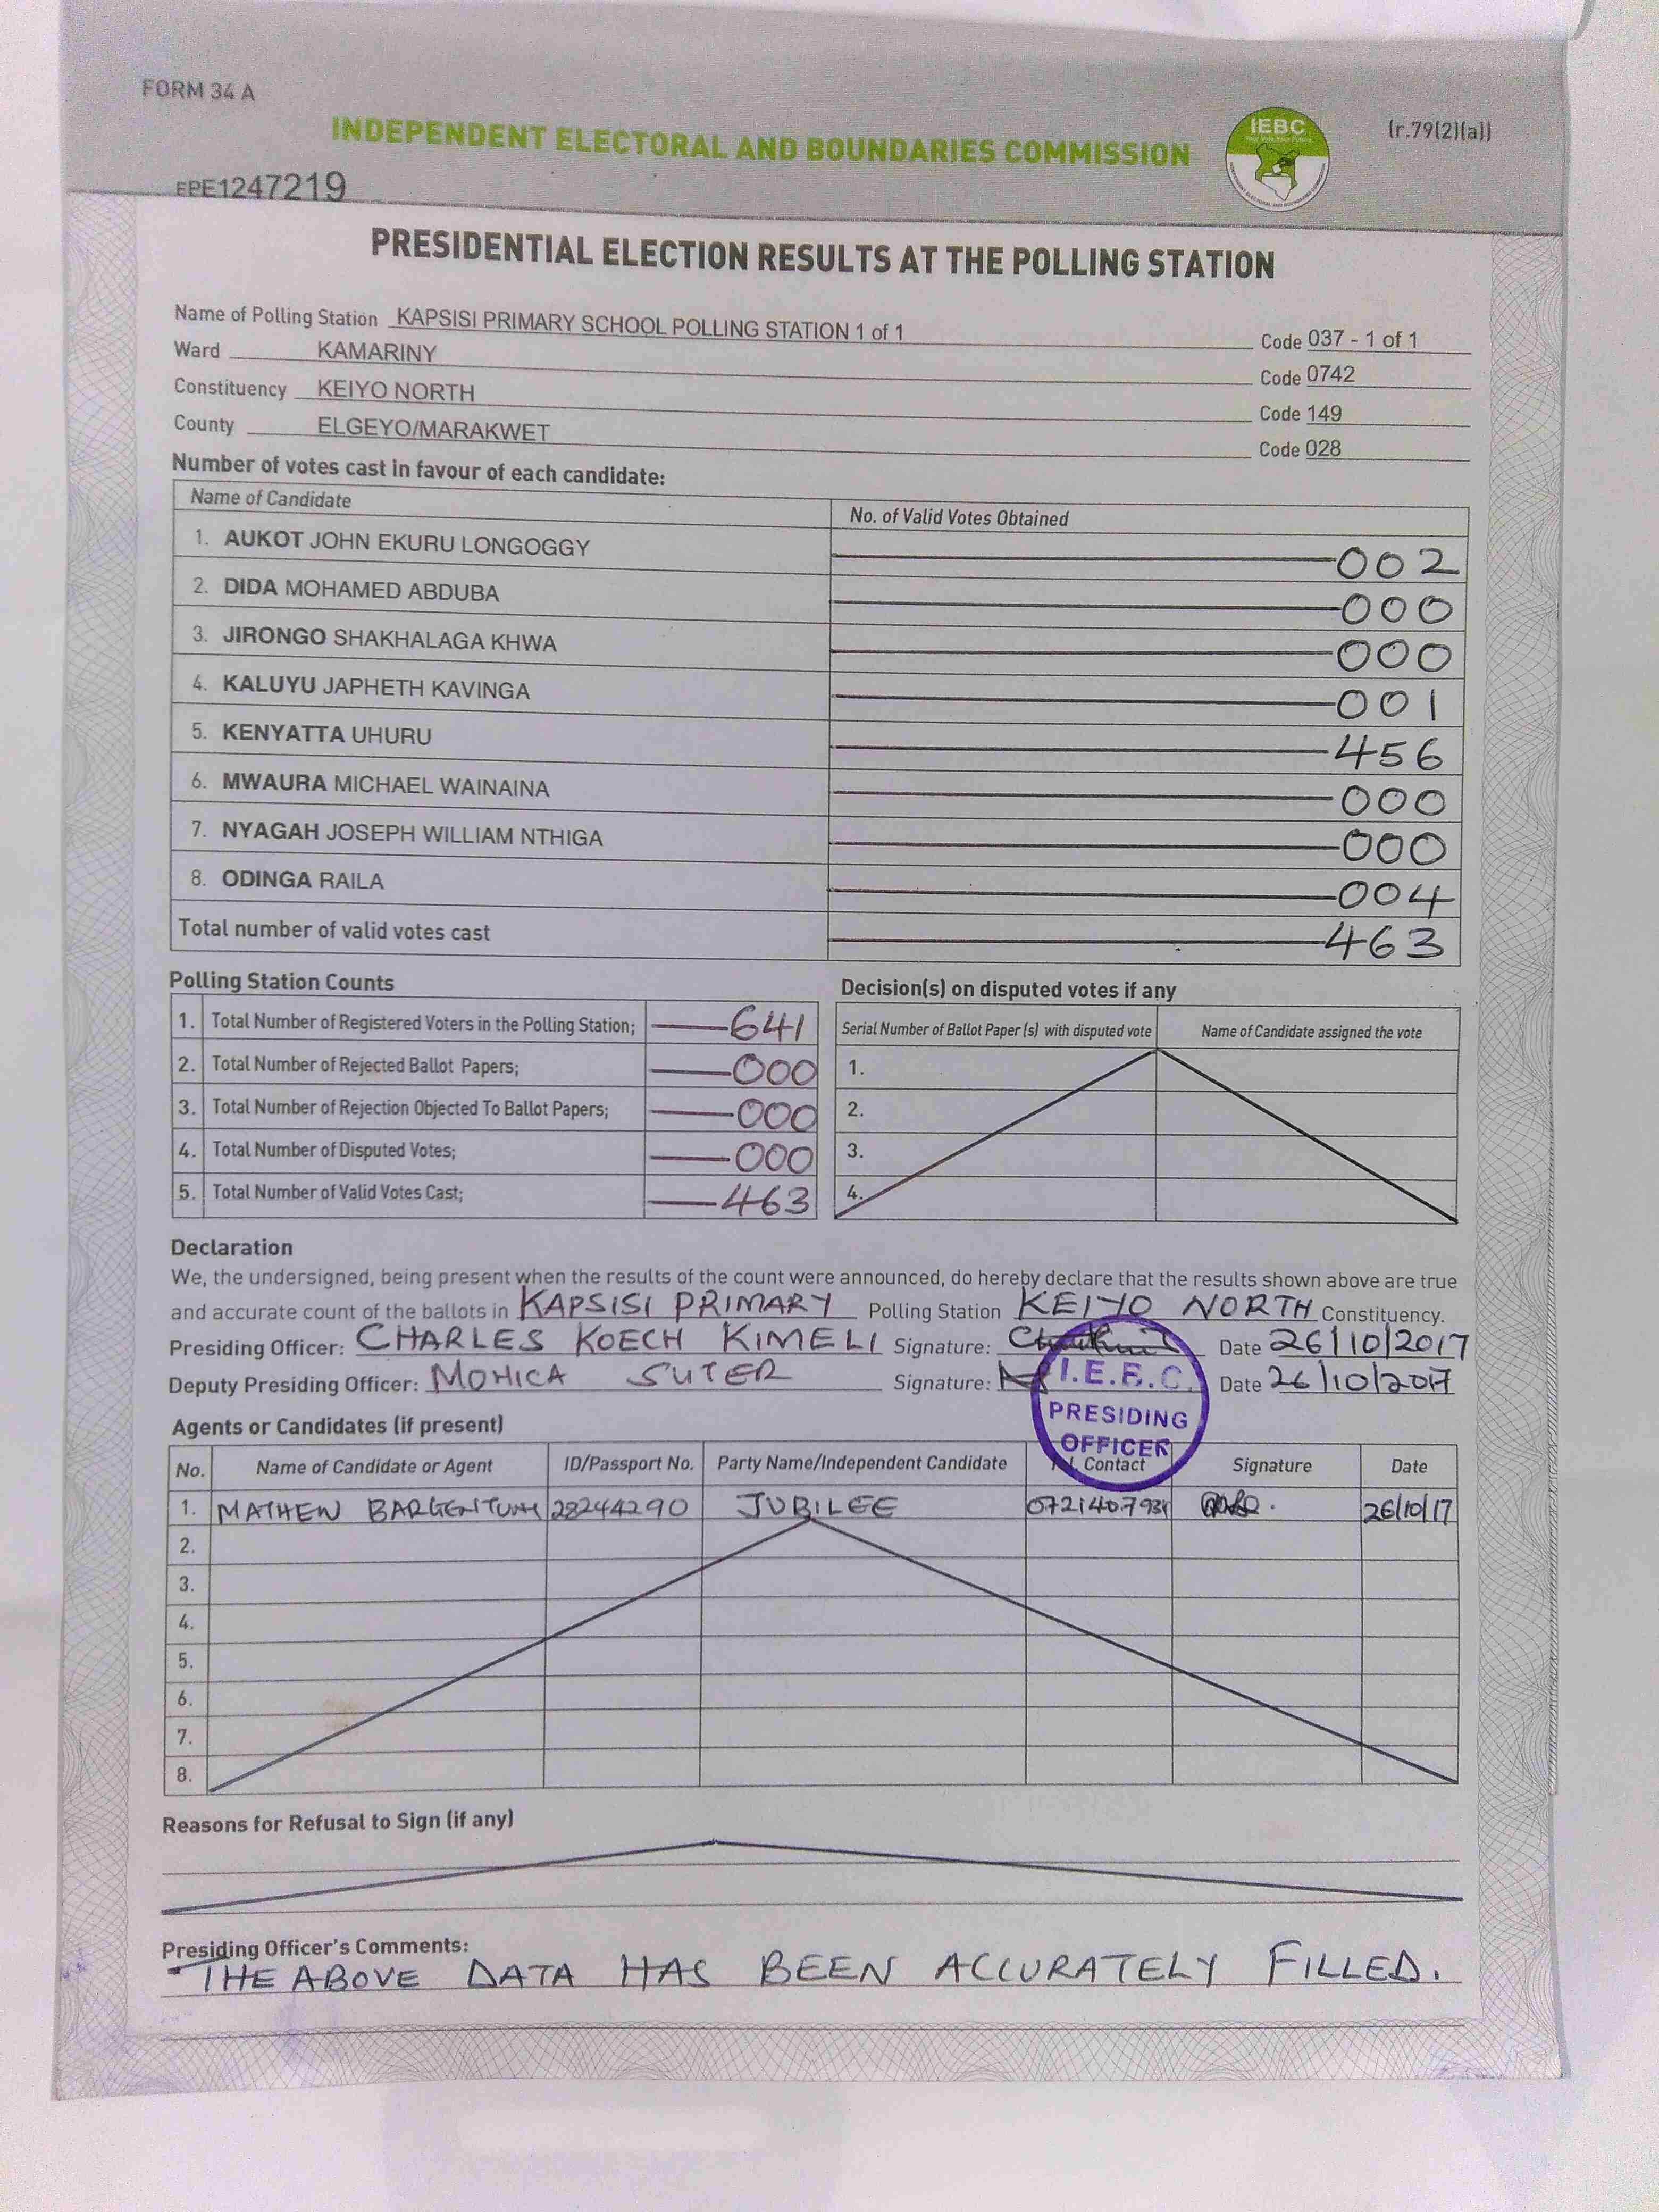 FORM 34 A
INDEPENDENT ELECTORAL AND BOUNDARIES COMMISSION
IEBC
(r.79(2)(a))
EPE1247219
PRESIDENTIAL ELECTION RESULTS AT THE POLLING STATION
Name of Polling Station KAPSISI PRIMARY SCHOOL POLLING STATION 1 of 1 Code 037 - 1 of 1
Ward KAMARINY Code 0742
Constituency KEIYO NORTH Code 149
County ELGEYO/MARAKWET Code 028
Number of votes cast in favour of each candidate:
Name of Candidate No. of Valid Votes Obtained
1. AUKOT JOHN EKURU LONGOGGY 002
2. DIDA MOHAMED ABDUBA 000
3. JIRONGO SHAKHALAGA KHWA 000
4. KALUYU JAPHETH KAVINGA 001
5. KENYATTA UHURU 456
6. MWAURA MICHAEL WAINAINA 000
7. NYAGAH JOSEPH WILLIAM NTHIGA 000
8. ODINGA RAILA 004
Total number of valid votes cast 463
Polling Station Counts
1. Total Number of Registered Voters in the Polling Station; 641
2. Total Number of Rejected Ballot Papers; 000
3. Total Number of Rejection Objected To Ballot Papers; 000
4. Total Number of Disputed Votes; 000
5. Total Number of Valid Votes Cast; 463
Decision(s) on disputed votes if any
Serial Number of Ballot Paper (s) with disputed vote Name of Candidate assigned the vote
1.
2.
3.
4.
Declaration
We, the undersigned, being present when the results of the count were announced, do hereby declare that the results shown above are true
and accurate count of the ballots in KAPSISI PRIMARY Polling Station KEIYO NORTH Constituency.
Presiding Officer: CHARLES KOECH KIMELI Signature: Date 26/10/2017
Deputy Presiding Officer: MONICA SUTER Signature: Date 26/10/2017
I.E.B.C.
PRESIDING
OFFICER
Agents or Candidates (if present)
No. Name of Candidate or Agent ID/Passport No. Party Name/Independent Candidate Contact Signature Date
1. MATHEW 28244290 JUBILEE 26/10/17
2.
3.
4.
5.
6.
7.
8.
Reasons for Refusal to Sign (if any)
Presiding Officer's Comments:
THE ABOVE DATA HAS BEEN ACCURATELY FILLED.